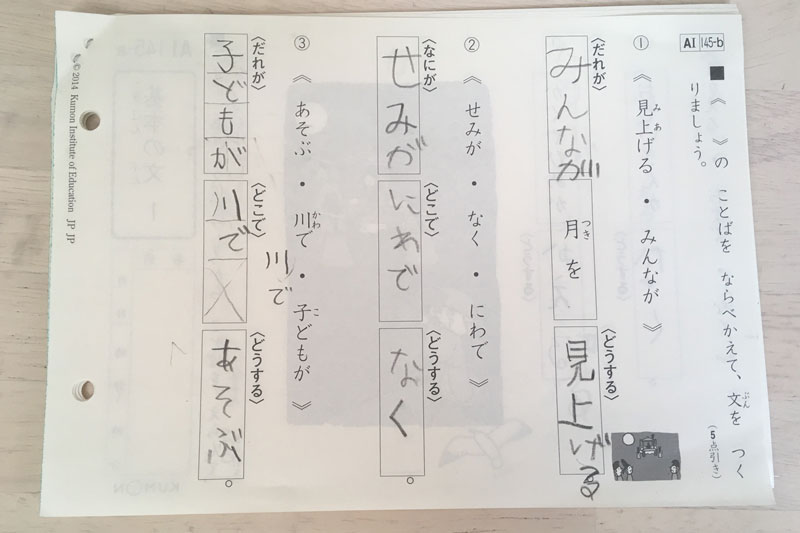 AI 145-b
■ 《 》の ことばを ならべかえて、文を つく
ぶん
りましょう。
(5点引き)
① 《 見上げる ・ みんなが 》
みあ
〈だれが〉
みんなが
月を
つき
〈どうする〉
見上げる
② 《 せみが ・ なく ・ にわで 》
〈なにが〉
せみが
〈どこで〉
にわで
〈どうする〉
なく。
③ 《 あそぶ ・ 川で ・ 子どもが 》
かわ
こ
川で
〈だれが〉
子どもが
〈どこで〉
川で
〈どうする〉
あそぶ。
© 2014 Kumon Institute of Education JP JP